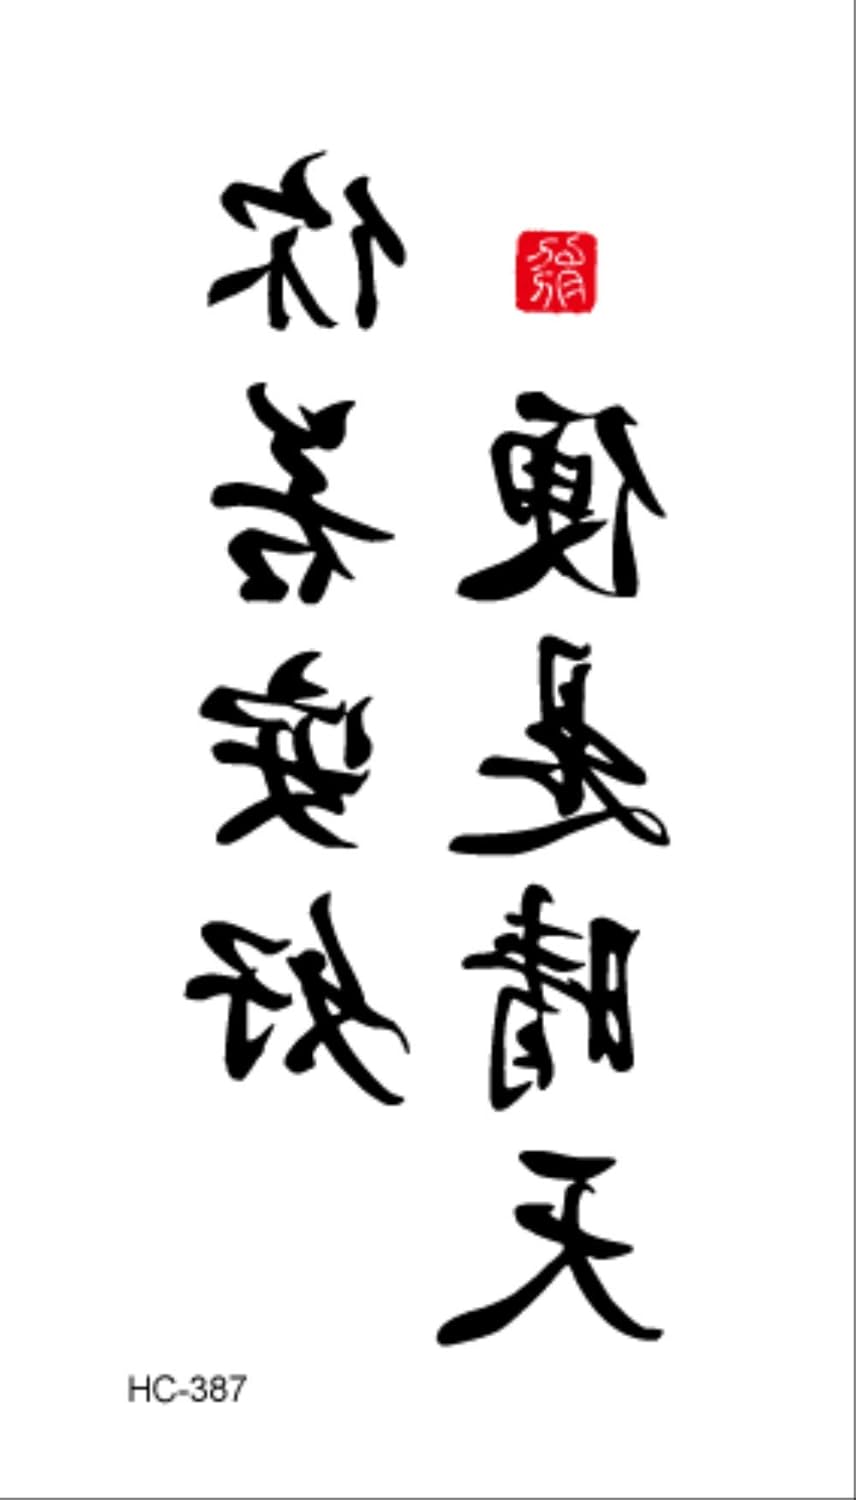 你若安好
便是晴天
HC-387